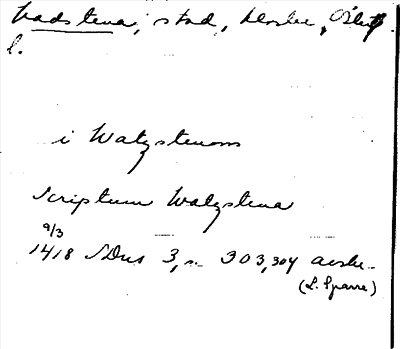 Vadstena, stad, kloster, Östergötl.
i Watzstenom
Scriptum Watzstena
9/3
1418 SDns 3, s. 303, 304 avskr.
(L. Sparre)